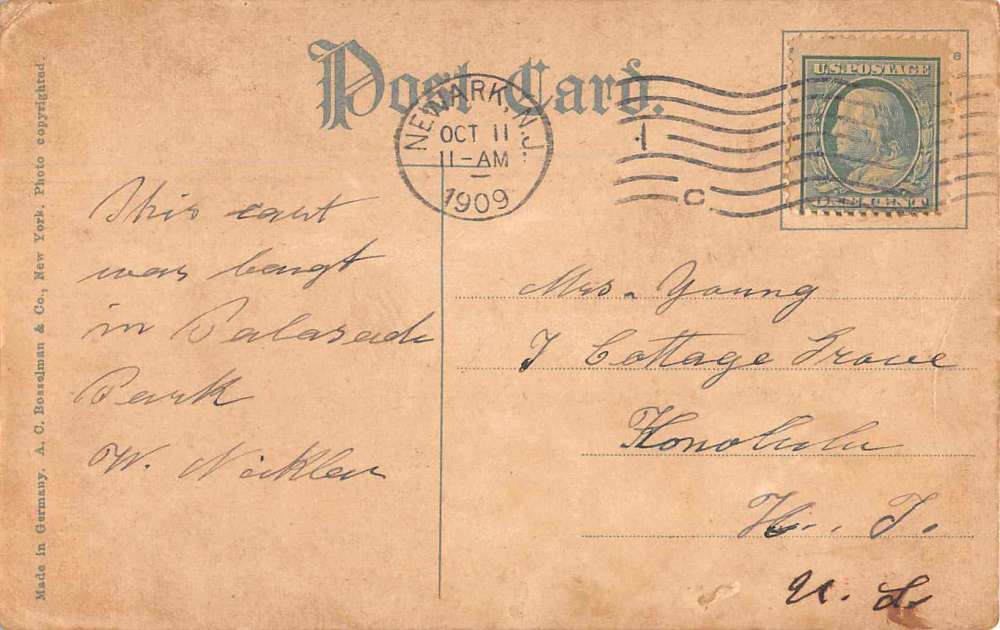 Post Card.
NEWARK, N.J.
OCT 11
11-AM
1909
1
C
U.S. POSTAGE
ONE CENT
e
This cart
was baugt
in Palasade
Park
W. Nickler
Mrs. Young
7 Cottage Grove
Honolulu
H. T.
U. S.
Made in Germany. A. C. Bosselman & Co., New York. Photo copyrighted.